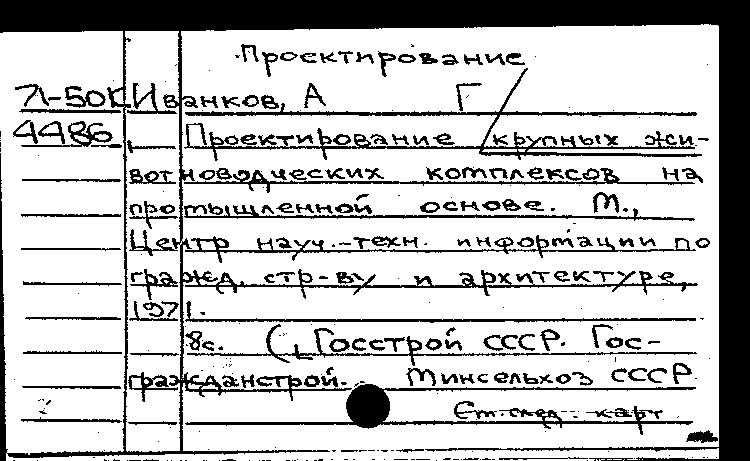 Проектирование
Л-50К Иванков, А Г
4486 Проектирование крупных жи-
вотноводческих комплексов на
промышленной основе. М.,
Центр науч.-техн. информации по
гражд. стр-ву и архитектуре,
1971.
8с. (Госстрой СССР. Гос-
гражданстрой. Минсельхоз СССР
См. след. карт